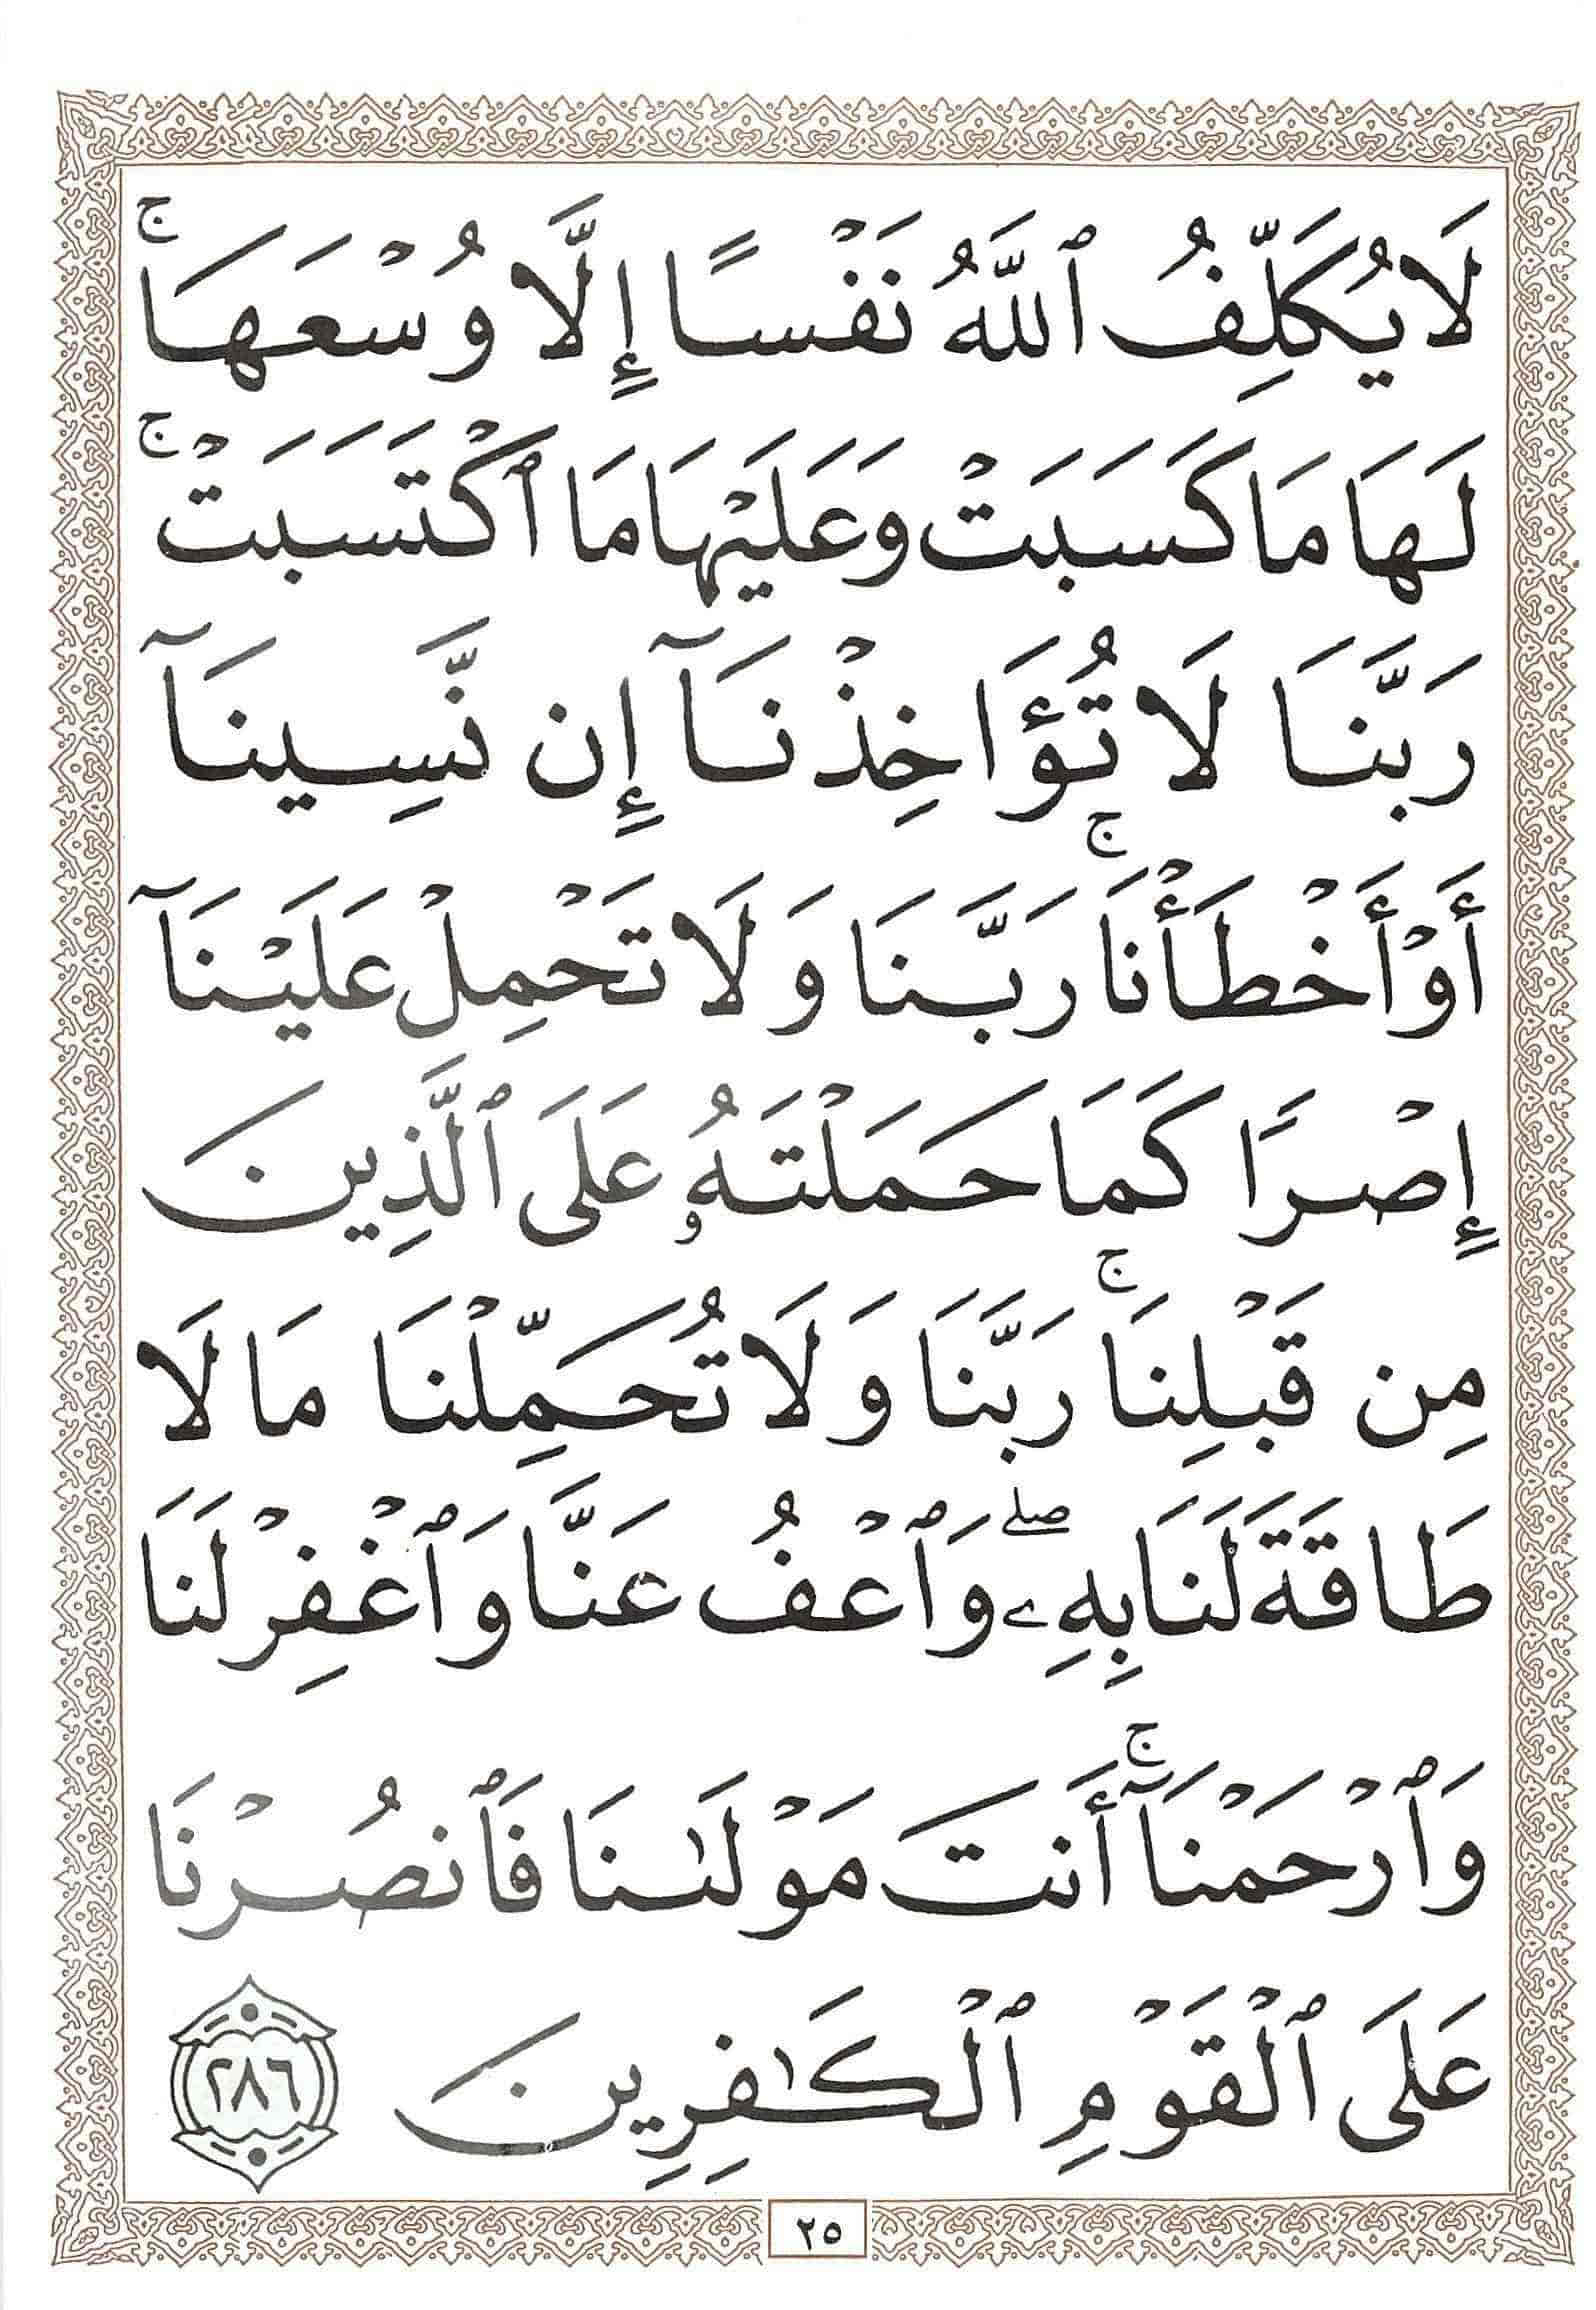 لَا يُكَلِّفُ ٱللَّهُ نَفْسًا إِلَّا وُسْعَهَا ۚ
لَهَا مَا كَسَبَتْ وَعَلَيْهَا مَا ٱكْتَسَبَتْ ۚ
رَبَّنَا لَا تُؤَاخِذْنَآ إِن نَّسِينَآ
أَوْ أَخْطَأْنَا ۚ رَبَّنَا وَلَا تَحْمِلْ عَلَيْنَآ
إِصْرًا كَمَا حَمَلْتَهُۥ عَلَى ٱلَّذِينَ
مِن قَبْلِنَا ۚ رَبَّنَا وَلَا تُحَمِّلْنَا مَا لَا
طَاقَةَ لَنَا بِهِۦ ۖ وَٱعْفُ عَنَّا وَٱغْفِرْ لَنَا
وَٱرْحَمْنَآ ۚ أَنتَ مَوْلَىٰنَا فَٱنصُرْنَا
عَلَى ٱلْقَوْمِ ٱلْكَـٰفِرِينَ ٢٨٦
٢٥